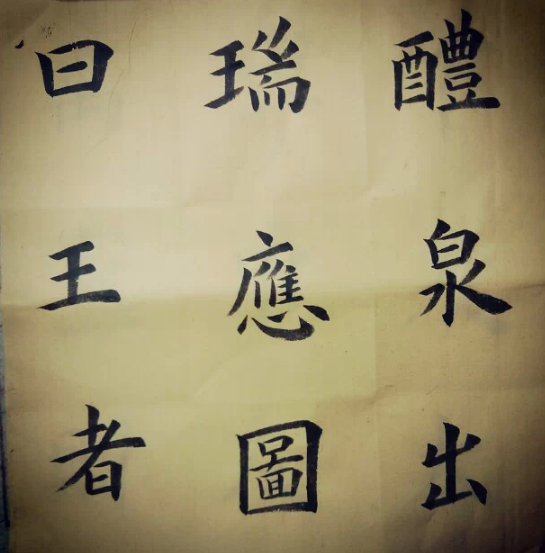 醴泉出
瑞應圖
曰王者